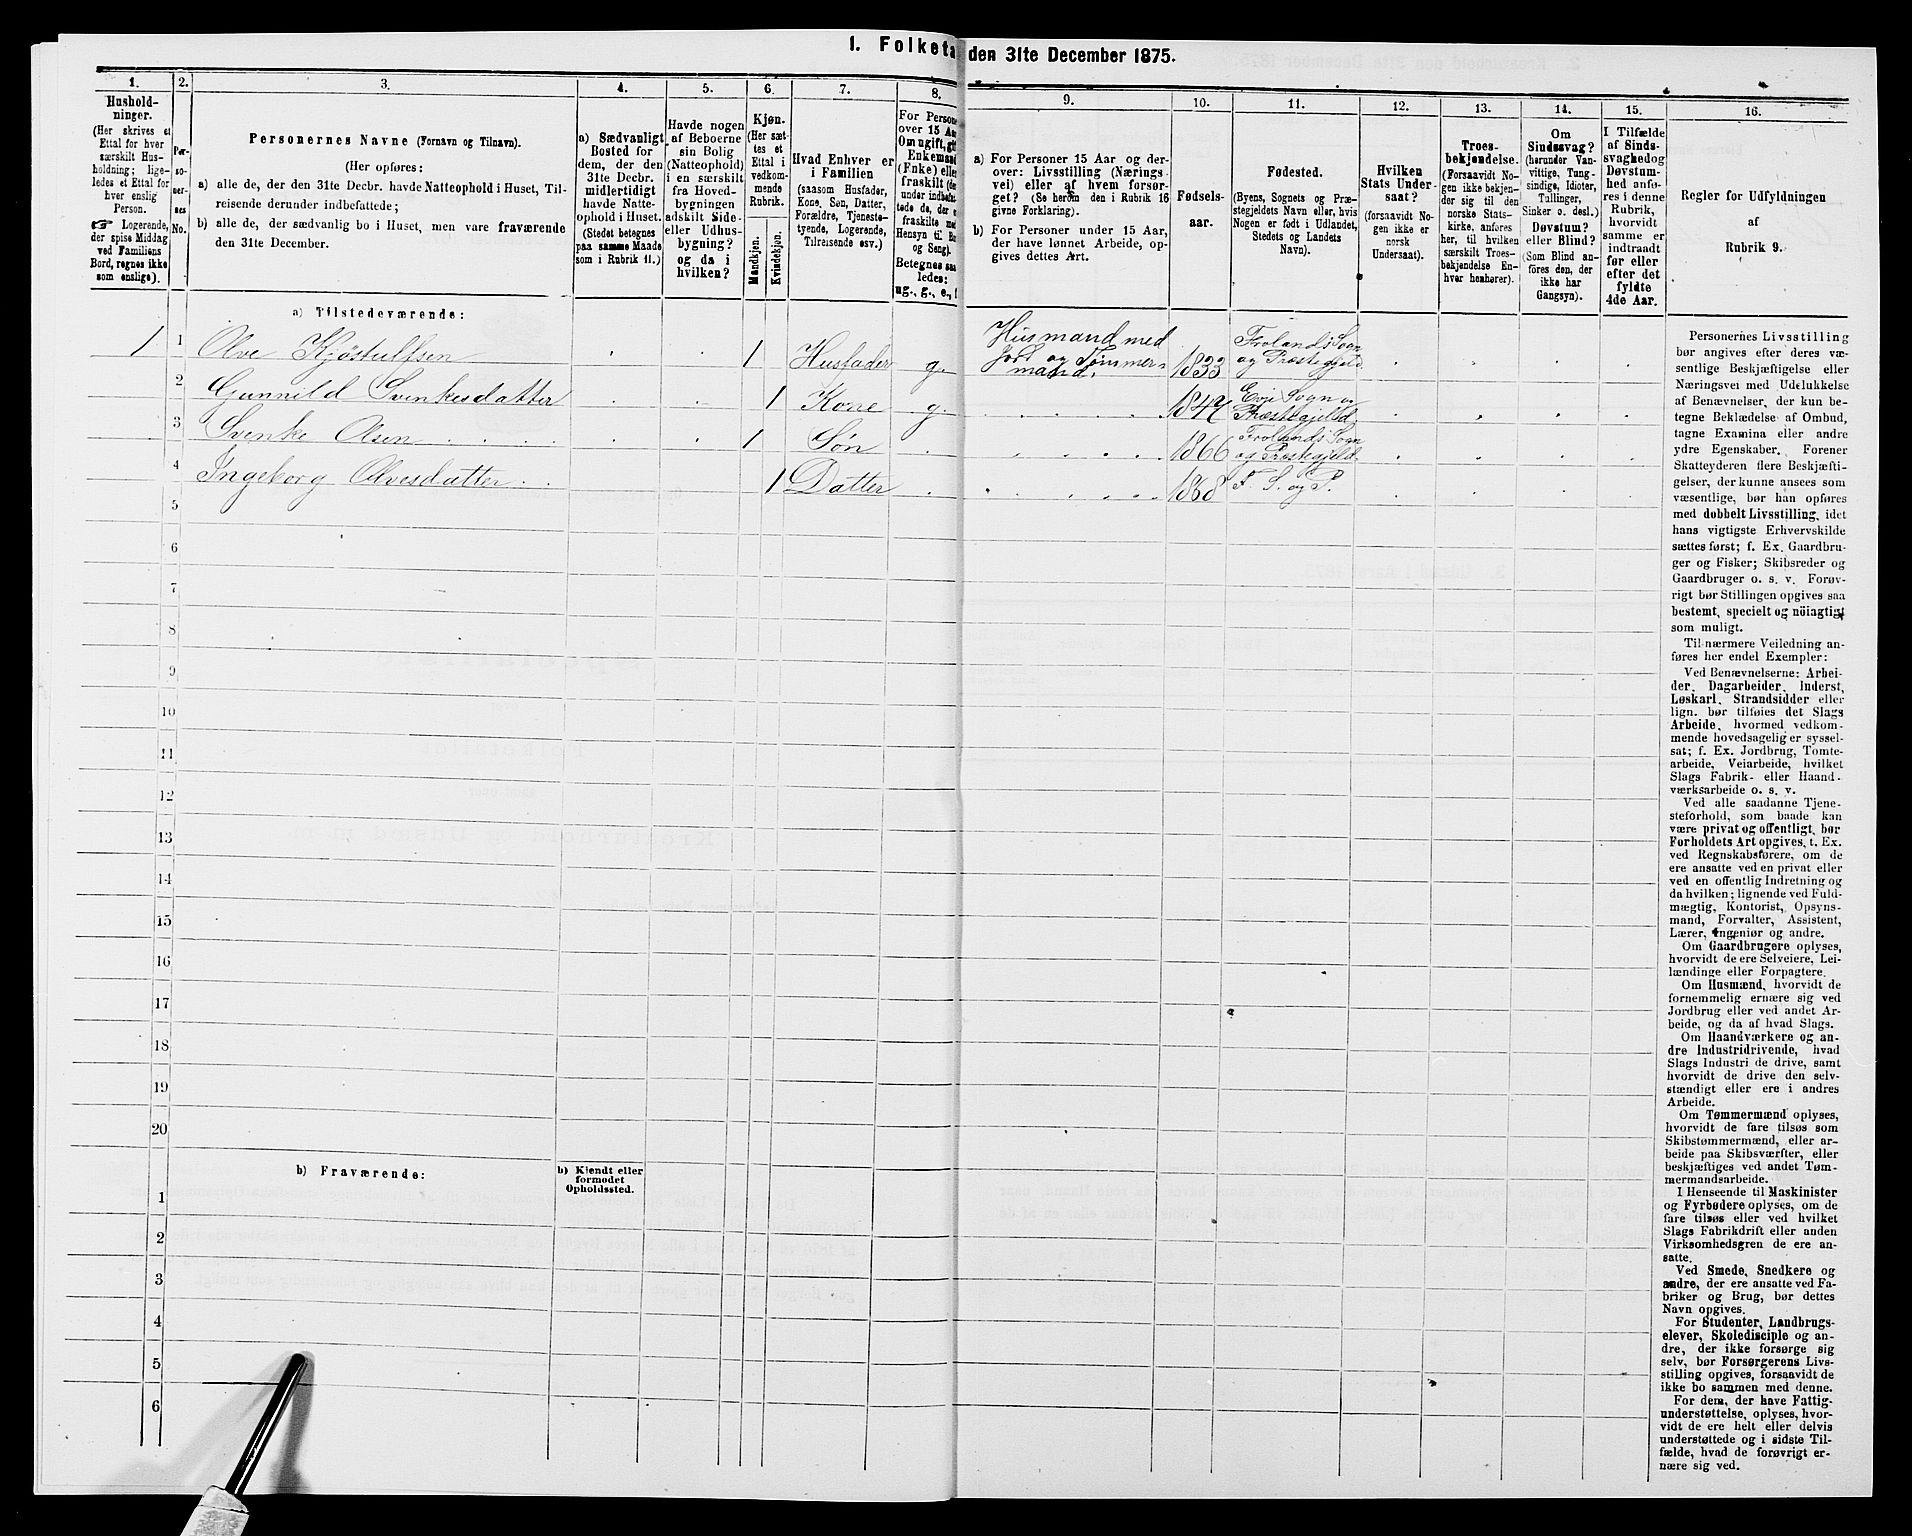 1. Folketa den 31te December 1875.
1.
Hushold-
ninger.
(Her skrives et
Ettal for hver
særskilt Hus-
holdning; lige-
ledes et Ettal for
hver enslig
Person.
☞ Logerende,
der spise Middag
ved Familiens
Bord, regnes ikke
som enslige).
2.
Per-
so-
ner-
nes
No.
3.
Personernes Navne (Fornavn og Tilnavn).
(Her opføres:
a) alle de, der den 31te Decbr. havde Natteophold i Huset, Til-
reisende derunder indbefattede;
b) alle de, der sædvanlig bo i Huset, men vare fraværende
den 31te December.
4.
a) Sædvanligt
Bosted for
dem, der den
31te Decbr.
midlertidigt
havde Natte-
ophold i Huset.
(Stedet betegnes
paa samme Maade
som i Rubrik 11.)
5.
Havde nogen
af Beboerne
sin Bolig
(Natteophold)
i en særskilt
fra Hoved-
bygningen
adskilt Side-
eller Udhus-
bygning?
og da i
hvilken?
6.
Kjøn.
(Her sæt-
tes et
Ettal i
vedkom-
mende
Rubrik.
Mandkjøn.
Kvindekjøn.
7.
Hvad Enhver er
i Familien
(saasom Husfader,
Kone, Søn, Datter,
Forældre, Tjeneste-
tyende, Logerende,
Tilreisende osv.)
8.
For Person
over 15 Aa
Om ugift, gi
Enkemand
(Enke) elle
fraskilt (de
under indbef
tede de, der e
fraskilte me
Hensyn til Bo
og Seng).
Betegnes saa
ledes:
ug., g., e., f
9.
a) For Personer 15 Aar og der-
over: Livsstilling (Nærings-
vei) eller af hvem forsør-
get? (Se herom den i Rubrik 16
givne Forklaring).
b) For Personer under 15 Aar,
der have lønnet Arbeide, op-
gives dettes Art.
10.
Fødsels-
aar.
11.
Fødested.
(Byens, Sognets og Præ-
stegjeldets Navn eller, hvis
Nogen er født i Udlandet,
Stedets og Landets
Navn).
12.
Hvilken
Stats Under-
saat?
(forsaavidt No-
gen ikke er
norsk
Undersaat).
13.
Troes-
bekjendelse.
(Forsaavidt No-
gen ikke bekjen-
der sig til den
norske Stats-
kirke, anføres
her, til hvilken
særskilt Troes-
bekjendelse En-
hver henhører).
14.
Om
Sindssvag?
(herunder Van-
vittige, Tung-
sindige, Idioter,
Tullinger,
Sinker o. desl.)
Døvstum?
eller Blind?
(Som Blind an-
føres den, der
ikke har
Gangsyn).
15.
I Tilfælde
af Sinds-
svaghed og
Døvstum-
hed anfø-
res i denne
Rubrik,
hvorvidt
samme er
indtraadt
før eller
efter det
fyldte
4de Aar.
16.
Regler for Udfyldningen
af
Rubrik 9.
a) Tilstedeværende:
1 1 Olve Kjöstulfsen 1 Husfader g. Husmand med Jord og Tømmermand. 1833 Frolands Sogn og Præstegjeld
2 Gunnild Svenkesdatter 1 Kone g. Evje Sogn og Præstegjeld
3 Svenke Olsen 1 Søn 1866 Frolands Sogn og Præstegjeld
4 Ingeborg Olvesdatter 1 Datter 1868 F. S. og P.
5
6
7
8
9
10
11
12
13
14
15
16
17
18
19
20
b) Fraværende:
b) Kjendt eller
formodet
Opholdssted.
1
2
3
4
5
6
Personernes Livsstilling
bør angives efter deres væ-
sentlige Beskjæftigelse eller
Næringsvei med Udelukkelse
af Benævnelser, der kun be-
tegne Beklædelse af Ombud,
tagne Examina eller andre
ydre Egenskaber. Forener
Skatteyderen flere Beskjæfti-
gelser, der kunne ansees som
væsentlige, bør han opføres
med dobbelt Livsstilling, idet
hans vigtigste Erhvervskilde
sættes først; f. Ex. Gaardbru-
ger og Fisker; Skibsreder og
Gaardbruger o. s. v. Forøv-
rigt bør Stillingen opgives saa
bestemt, specielt og nöiagtigt
som muligt.
Til nærmere Veiledning an-
føres her endel Exempler:
Ved Benævnelserne: Arbei-
der, Dagarbeider, Inderst,
Løskarl, Strandsidder eller
lign. bør tilføies det Slags
Arbeide, hvormed vedkom-
mende hovedsagelig er syssel-
sat; f. Ex. Jordbrug, Tomte-
arbeide, Veiarbeide, hvilket
Slags Fabrik- eller Haand-
værksarbeide o. s. v.
Ved alle saadanne Tjene-
steforhold, som baade kan
være privat og offentligt, bør
Forholdets Art opgives, t. Ex.
ved Regnskabsførere, om de
ere ansatte ved en privat eller
ved en offentlig Indretning og
da hvilken; lignende ved Fuld-
mægtig, Kontorist, Opsyns-
mand, Forvalter, Assistent,
Lærer, Ingeniør og andre.
Om Gaardbrugere oplyses,
hvorvidt de ere Selveiere, Lei-
lændinge eller Forpagtere.
Om Husmænd, hvorvidt de
fornemmelig ernære sig ved
Jordbrug eller ved andet Ar-
beide, og da af hvad Slags.
Om Haandværkere og an-
dre Industridrivende, hvad
Slags Industri de drive, samt
hvorvidt de drive den selv-
stændigt eller ere i andres
Arbeide.
Om Tømmermænd oplyses,
hvorvidt de fare tilsøs som
Skibstømmermænd, eller ar-
beide paa Skibsværfter, eller
beskjæftiges ved andet Tøm-
mermandsarbeide.
I Henseende til Maskinister
og Fyrbødere oplyses, om de
fare tilsøs eller ved hvilket
Slags Fabrikdrift eller anden
Virksomhedsgren de ere an-
satte.
Ved Smede, Snedkere og
andre, der ere ansatte ved Fa-
briker og Brug, bør dettes
Navn opgives.
For Studenter, Landbrugs-
elever, Skoledisciple og an-
dre, der ikke forsørge sig
selv, bør Forsørgerens Livs-
stilling opgives, forsaavidt de
ikke bo sammen med denne.
For dem, der have Fattig-
understøttelse, oplyses, hvor-
vidt de ere helt eller delvis
understøttede og i sidste Til-
fælde, hvad de forøvrigt er-
nære sig ved.